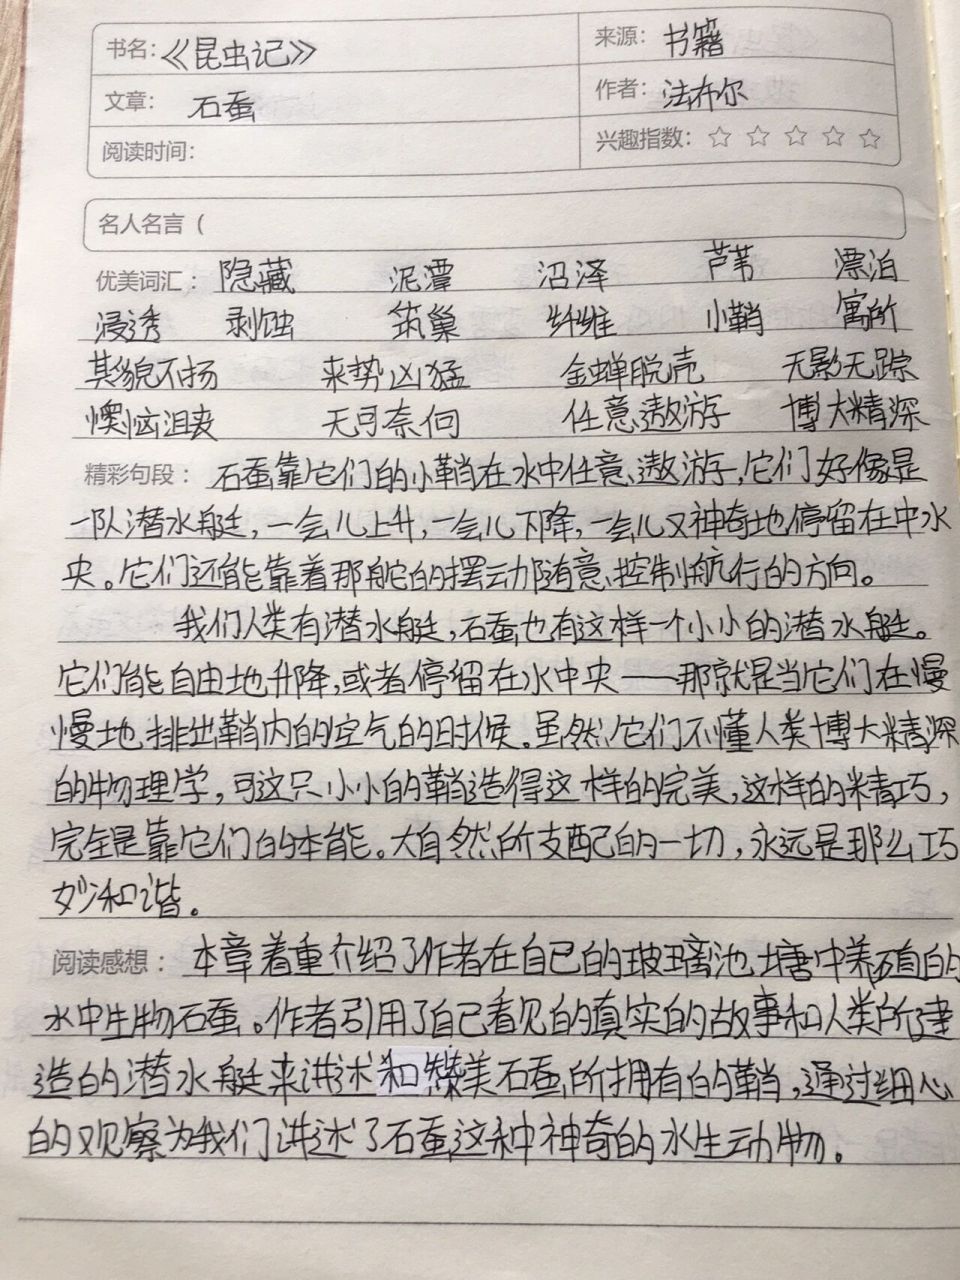 书名：《昆虫记》 来源：书籍
文章：石蚕 作者：法布尔
阅读时间： 兴趣指数：☆ ☆ ☆ ☆ ☆
名人名言（
优美词汇：隐藏 泥潭 沼泽 芦苇 漂泊
浸透 剥蚀 筑巢 纤维 小鞘 寓所
其貌不扬 来势凶猛 金蝉脱壳 无影无踪
懊恼沮丧 无可奈何 任意遨游 博大精深
精彩句段：石蚕靠它们的小鞘在水中任意遨游，它们好像是
一队潜水艇，一会儿上升，一会儿下降，一会儿又神奇地停留在中水
央。它们还能靠着那舵的摆动随意控制航行的方向。
我们人类有潜水艇，石蚕也有这样一个小小的潜水艇。
它们能自由地升降，或者停留在水中央——那就是当它们在慢
慢地排出鞘内的空气的时候。虽然它们不懂人类博大精深
的物理学，可这只小小的鞘造得这样的完美，这样的精巧，
完全是靠它们的本能。大自然所支配的一切，永远是那么巧
妙和谐。
阅读感想：本章着重介绍了作者在自己的玻璃池塘中养殖的
水中生物石蚕。作者引用了自己看见的真实的故事和人类所建
造的潜水艇来讲述和赞美石蚕所拥有的鞘，通过细心
的观察为我们讲述了石蚕这种神奇的水生动物。